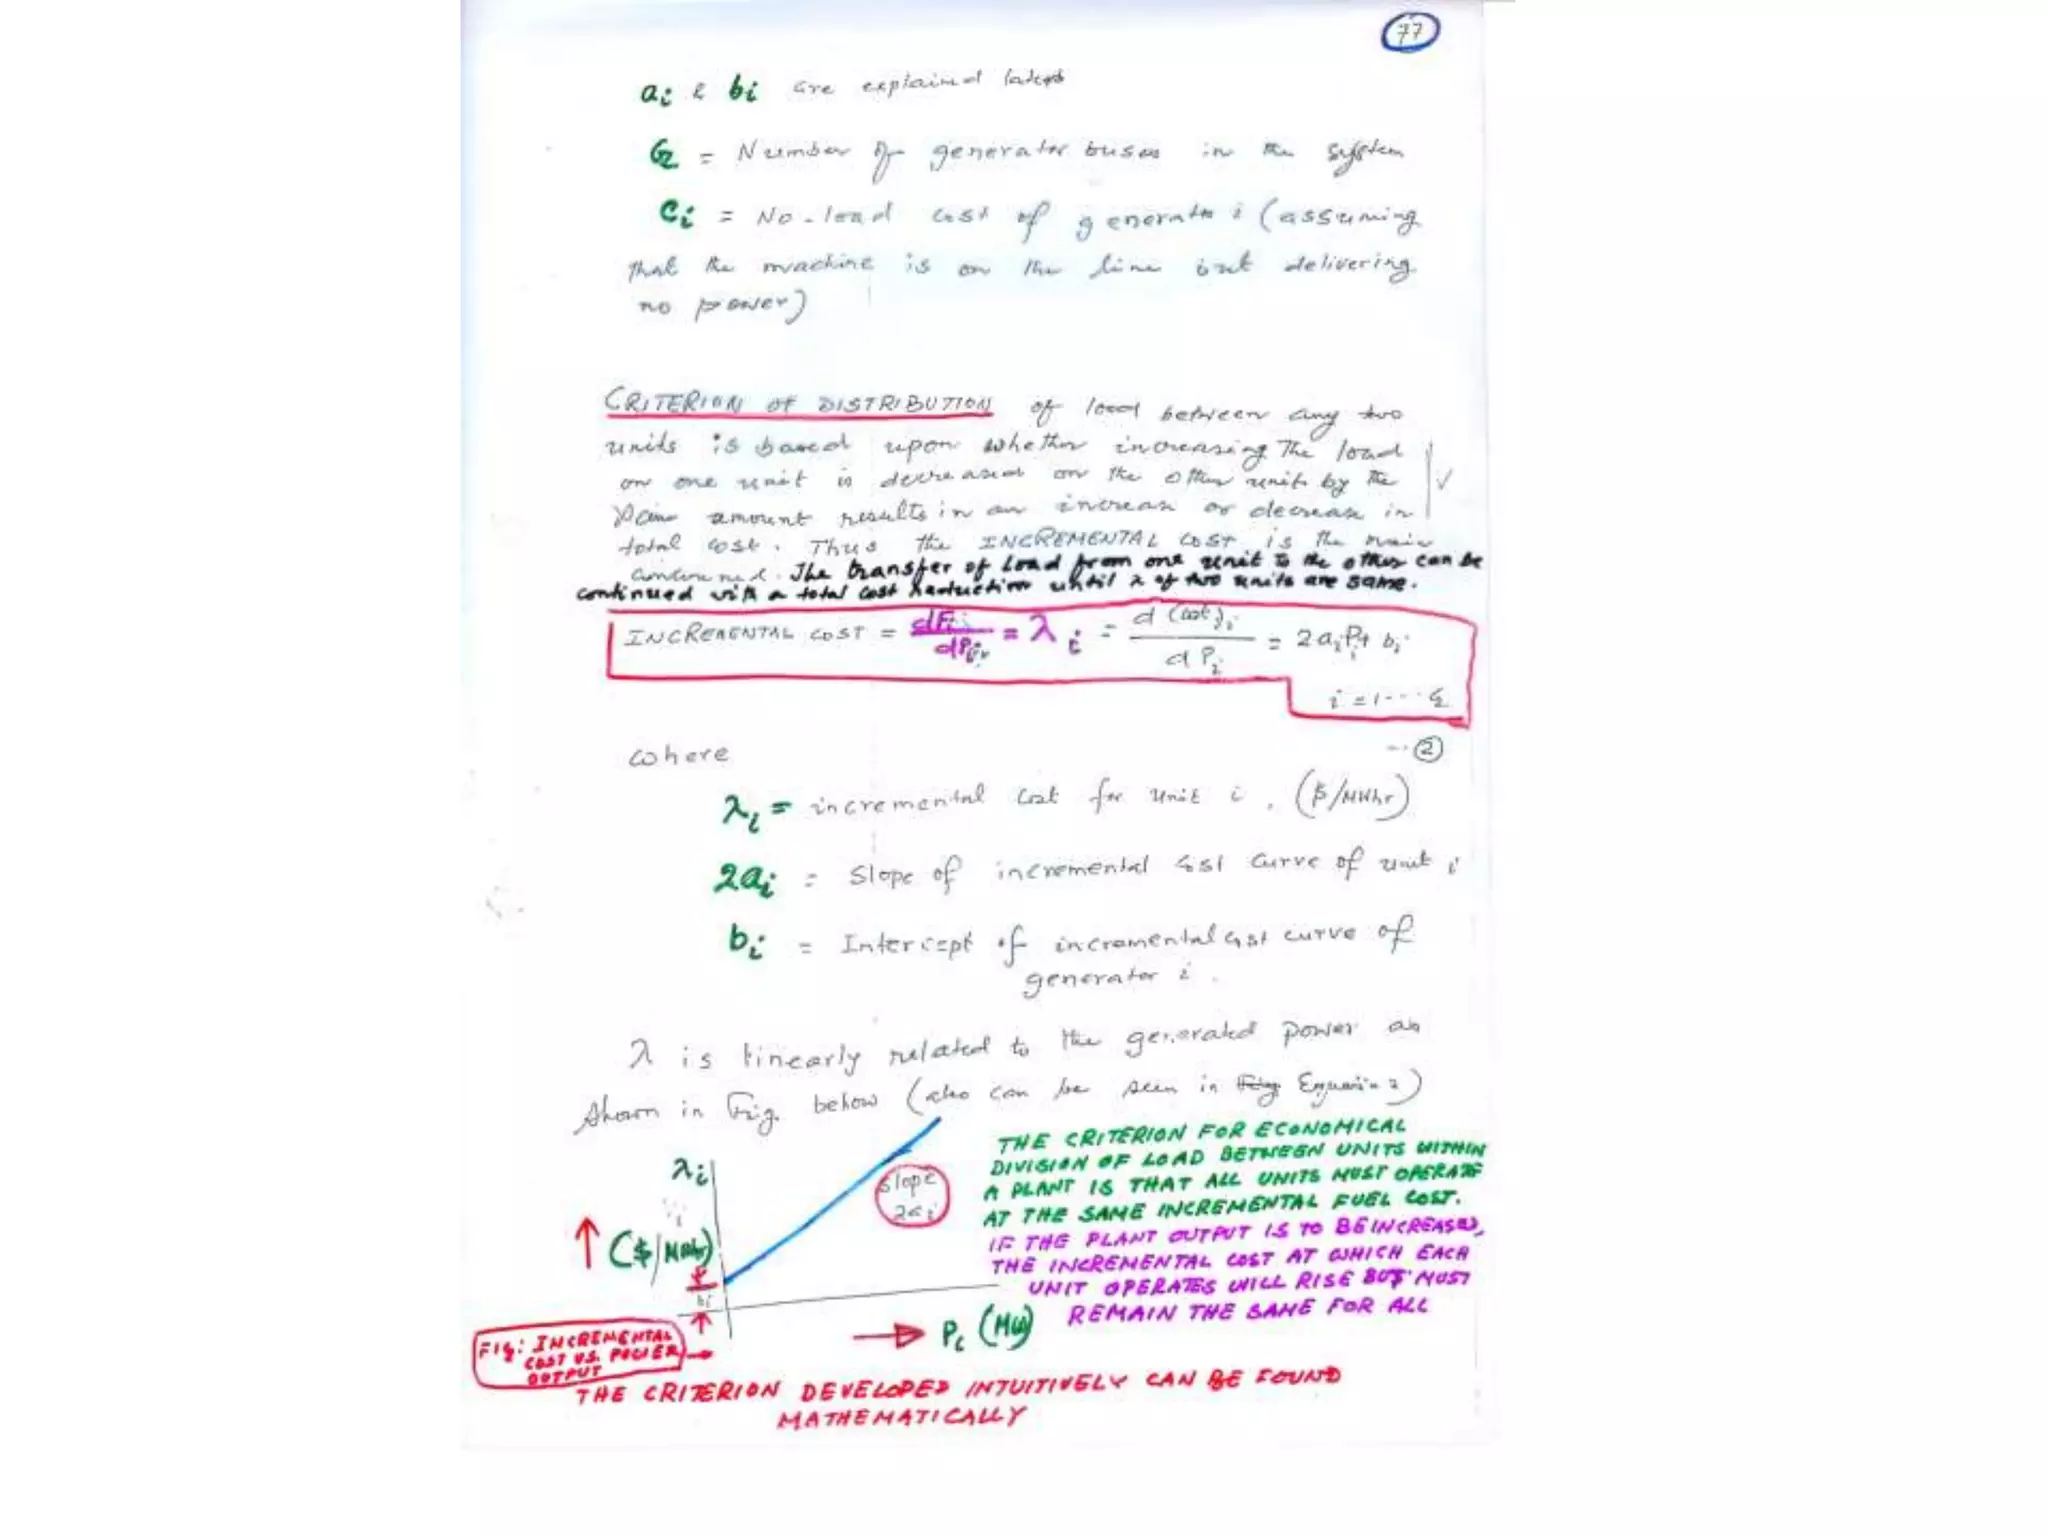 77
ai & bi are explained later
G = Number of generator buses in the system
Ci = No-load cost of generator i (assuming
that the machine is on the line but delivering
no power)
CRITERION OF DISTRIBUTION of load between any two
units is based upon whether increasing the load
on one unit is decreased on the other unit by the
same amount results in an increase or decrease in
total cost. Thus the INCREMENTAL COST is the main
The transfer of Load from one unit to the other can be
continued with a total cost reduction until λ of two units are same.
INCREMENTAL COST = dFi/dPGi = λi = d (cost)i / d Pi = 2aiPi + bi
i = 1 ---- G
-- ②
where
λi = incremental cost for unit i, ($/MWhr)
2ai = Slope of incremental cost curve of unit i
bi = Intercept of incremental cost curve of
generator i.
λ is linearly related to the generated power as
shown in Fig. below (also can be seen in Fig Equation 2)
THE CRITERION FOR ECONOMICAL
DIVISION OF LOAD BETWEEN UNITS WITHIN
A PLANT IS THAT ALL UNITS MUST OPERATE
AT THE SAME INCREMENTAL FUEL COST.
IF THE PLANT OUTPUT IS TO BE INCREASED,
THE INCREMENTAL COST AT WHICH EACH
UNIT OPERATES WILL RISE BUT MUST
REMAIN THE SAME FOR ALL
λi
slope
2ai
($/MWhr)
bi
Pi (MW)
FIG: INCREMENTAL
COST VS. POWER
OUTPUT
THE CRITERION DEVELOPED INTUITIVELY CAN BE FOUND
MATHEMATICALLY